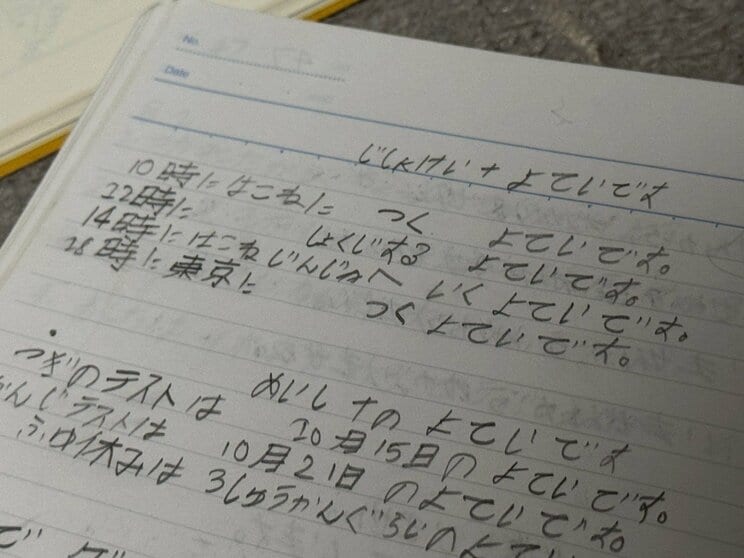 No.
Date
じしょけい + よていです
10時に はこねに つく よていです。
12時に しょくじする よていです。
14時に はこねじんじゃへ いく よていです。
18時に 東京に つく よていです。
めいし + の よていです
つぎのテストは 10月15日の よていです。
かんじテストは 10月21日 のよていです。
ふゆ休みは 3しゅうかんぐらいのよてい